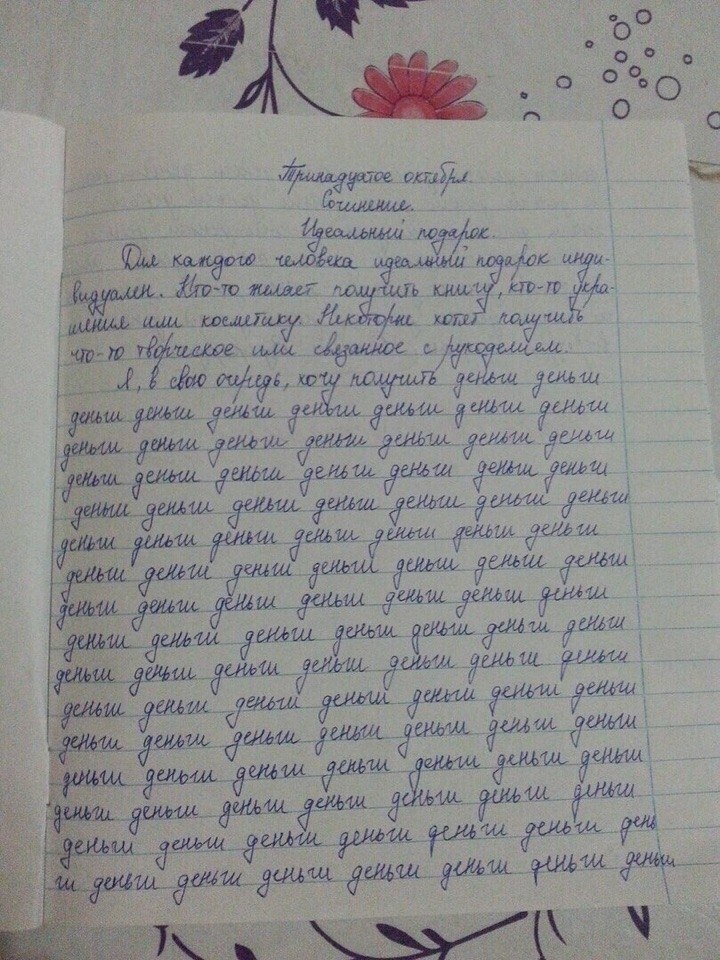 Тринадцатое октября.
Сочинение.
Идеальный подарок.
Для каждого человека идеальный подарок инди-
видуален. Кто-то желает получить книгу, кто-то укра-
шения или косметику. Некоторые хотят получить
что-то творческое или связанное с рукоделием.
Я, в свою очередь, хочу получить деньги деньги
деньги деньги деньги деньги деньги деньги деньги
деньги деньги деньги деньги деньги деньги деньги
деньги деньги деньги деньги деньги деньги деньги
деньги деньги деньги деньги деньги деньги деньги
деньги деньги деньги деньги деньги деньги деньги
деньги деньги деньги деньги деньги деньги деньги
деньги деньги деньги деньги деньги деньги деньги
деньги деньги деньги деньги деньги деньги деньги
деньги деньги деньги деньги деньги деньги деньги
деньги деньги деньги деньги деньги деньги деньги
деньги деньги деньги деньги деньги деньги деньги
деньги деньги деньги деньги деньги деньги деньги
деньги деньги деньги деньги деньги деньги деньги
деньги деньги деньги деньги деньги деньги день
ги деньги деньги деньги деньги деньги деньги деньги